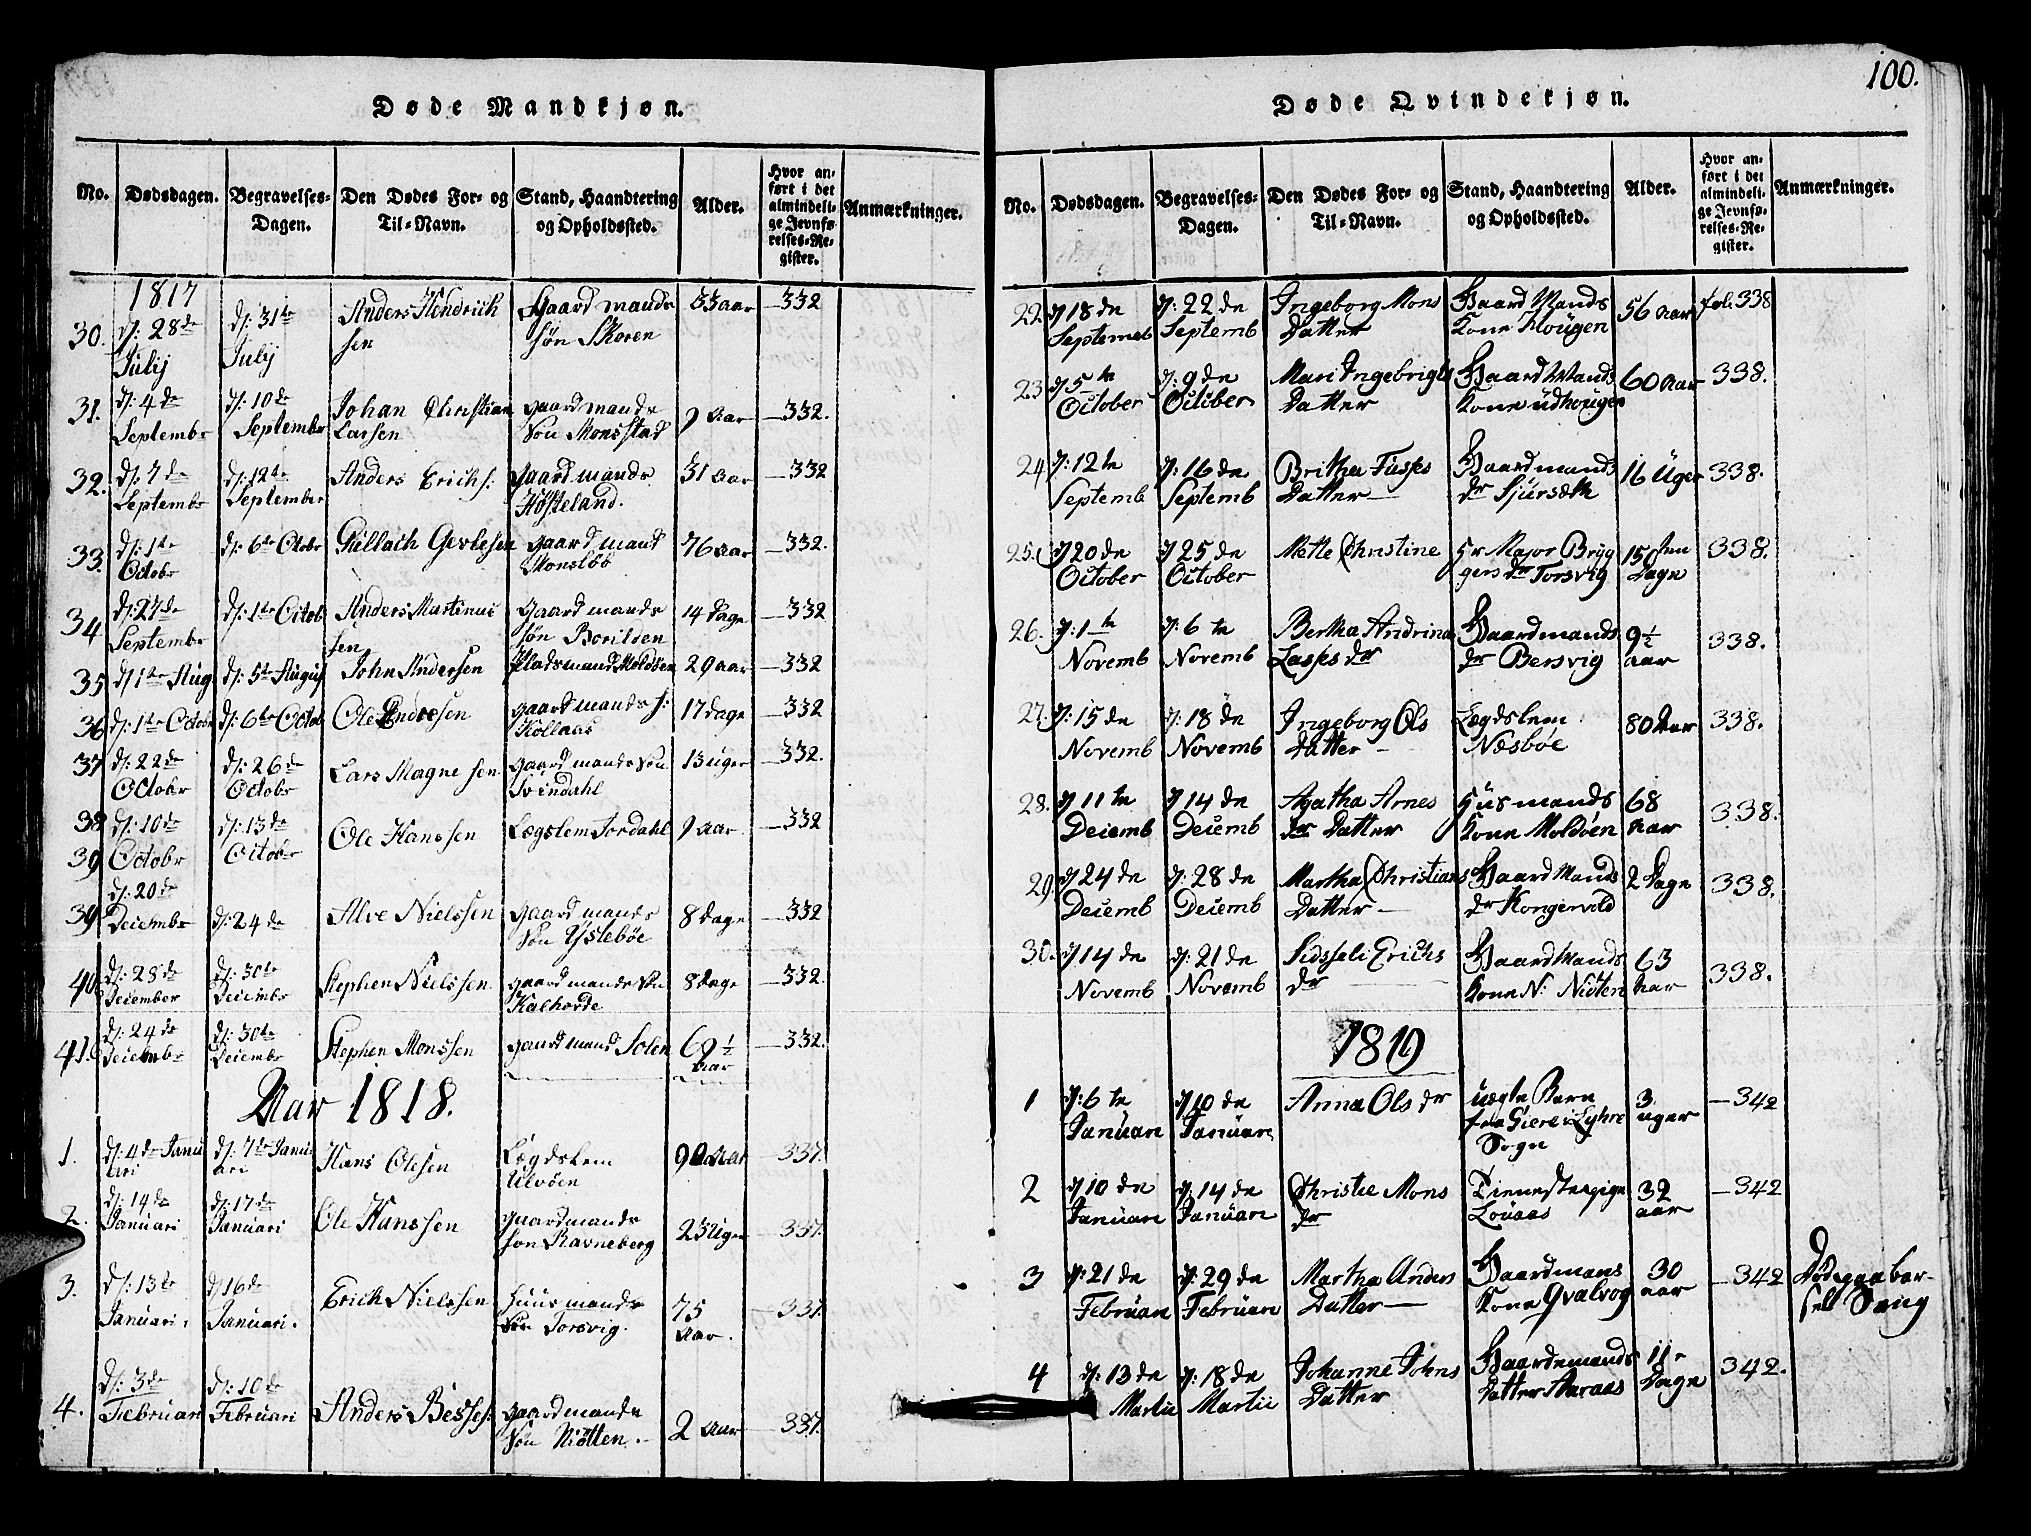 100.
Døde Mandkjøn.
No. Dødsdagen. Begravelses-Dagen. Den Dødes For- og Til-Navn. Stand, Haandtering og Opholdssted. Alder. Hvor anført i det almindelige Jevnførelses-Register. Anmærkninger.
1817
30. d/: 28de Julij d/: 31te Julij Anders Hendrichsen Gaardmands søn Skoren 33 aar 332
31. d/: 4de Septembr d/: 10de Septembr Johan Christian Larsen gaardmands Søn Monsstad 9 Aar 332.
32. d/: 7de Septembr d/: 12te September Anders Erichs: Gaardmands Høsteland. 31 Aar 332
33. d/: 1te Octobr d/: 6te Octobr Gillach Gerlesen gaardmand Monslbö 76 Aar 332.
34 d/: 27de Septembr d/: 1te Octob Anders Martinussen gaardmands søn Borilden 14 dage 332
35 d/ 1te Aug d/: 5te August John Andersen Pladsmand Moldøen 29 aar 332
36 d/: 1te Octobr d/: 6te Octob Ole Andersen gaardmands s: Kollaas 17 dage 332
37 d/: 22de Octobr d/: 26de Octobr Lars Magnesen gaardmands Søn Svindahl 13 uger 332.
38 d/: 10de Octobr d/: 13de Octobr Ole Hanssen Lægslem Jordahl 9 Aar 332
39
39 d/: 20de Decembr d/: 24de Alve Nielssen gaardmands Søn Ystebøe 8 dage 332
40. d/: 28de December d/: 30te Decembr Stephen Nielssen gaardmands Søn Kalhovde 8 dage 332.
41. d/: 24de Decembr d/: 30te Decembr Stephen Monssen gaardmand Solen 69 ½ Aar 332.
Aar 1818.
1. d/: 4de Januari d/: 7de Januari Hans Olesen Lægdslem Ulvöen 90 Aar 337.
2. d/: 14de Januari d/: 17de Januari Ole Hanssen gaardmands søn Ravneberg 23 Uger 337.
3. d/: 13de Januari. d/ 16de Januari. Erich Nielssen Huusmands Søn Torsvig. 75 Aar. 337.
4. d/: 3de Februari d/: 10de Februari Anders Besses: gaardmands Søn Niötten. 2 Aar 337.
Døde Qvindekjøn.
No. Dødsdagen. Begravelses-Dagen. Den Dødes For- og Til-Navn. Stand, Haandtering og Opholdssted. Alder. Hvor anført i det almindelige Jevnførelses-Register. Anmærkninger.
22. d/ 18de Septemb d/: 22de Septemb Ingeborg Mons Datter Gaard Mands Kone Hougen 56 aar fol: 338
23 d/ 5te October d/: 9de October Mari Ingebrigts Datter Gaard Mands Kone udhougen 60 aar 338.
24 d/: 12te Septemb d/: 16de Septemb Britha Fusses Datter Gaardmands dr Sjursæth 16 Uger 338.
25. d/ 20de October d/ 25de October Mette Christine Hr Major Bryggers dr Torsvig 15 ten Dage 338.
26. d/: 1te Novemb d/: 6te Novemb Bertha Andrina Lasses dr Gaardmands dr Bersvig 9½ aar 338.
27. d/: 15de Novemb d/: 18de Novemb Ingeborg Ols Datter Lægdslem Næsbøe 80 Aar 338.
28. d/ 11te Decemb d/ 14de Decemb Agatha Arnes dr Datter Husmands Kone Moldöen 68 Aar 338.
29. d/ 24de Decemb d/: 28de Decemb Martha Christians Datter Gaard Mands dr Kongervild 2 Dage 338.
30. d/ 14de Novemb d/: 21de Novemb Sidsseli Erichs dr Gaard Mands Kone N: Niöten 63 Aar 338.
1819
1 d/: 6te Januari d/ 10de Januari Anna Ols dr uægte Barn fra Giere i Lyhre Sogn 3 uger 342
2 d/ 10de Januari d/ 14de Januari Christie Mons dr Tienestepige Louaas 32 aar 342
3 d/: 21de Februari d/: 29de Februari Martha Anders Datter Gaardmans Kone Qvalvog 30 aar 342 Döde paa barsell Seng
4 d/: 13de Martii d/: 18de Martii Johanne Johns Datter Gaardemands Datter Aaraas 11 Dage 342.